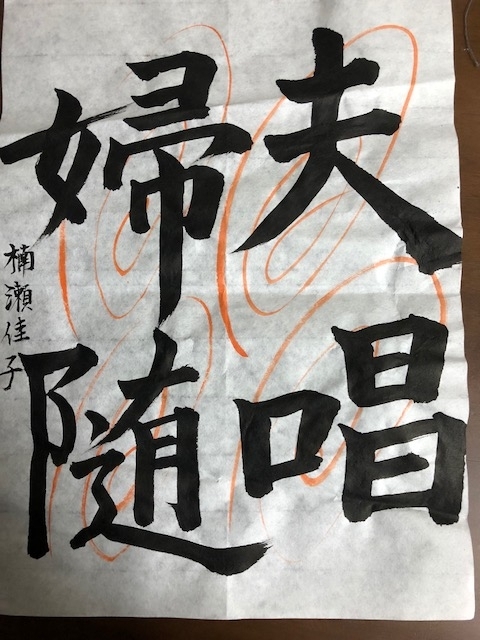 夫唱
婦随
楠瀬佳子